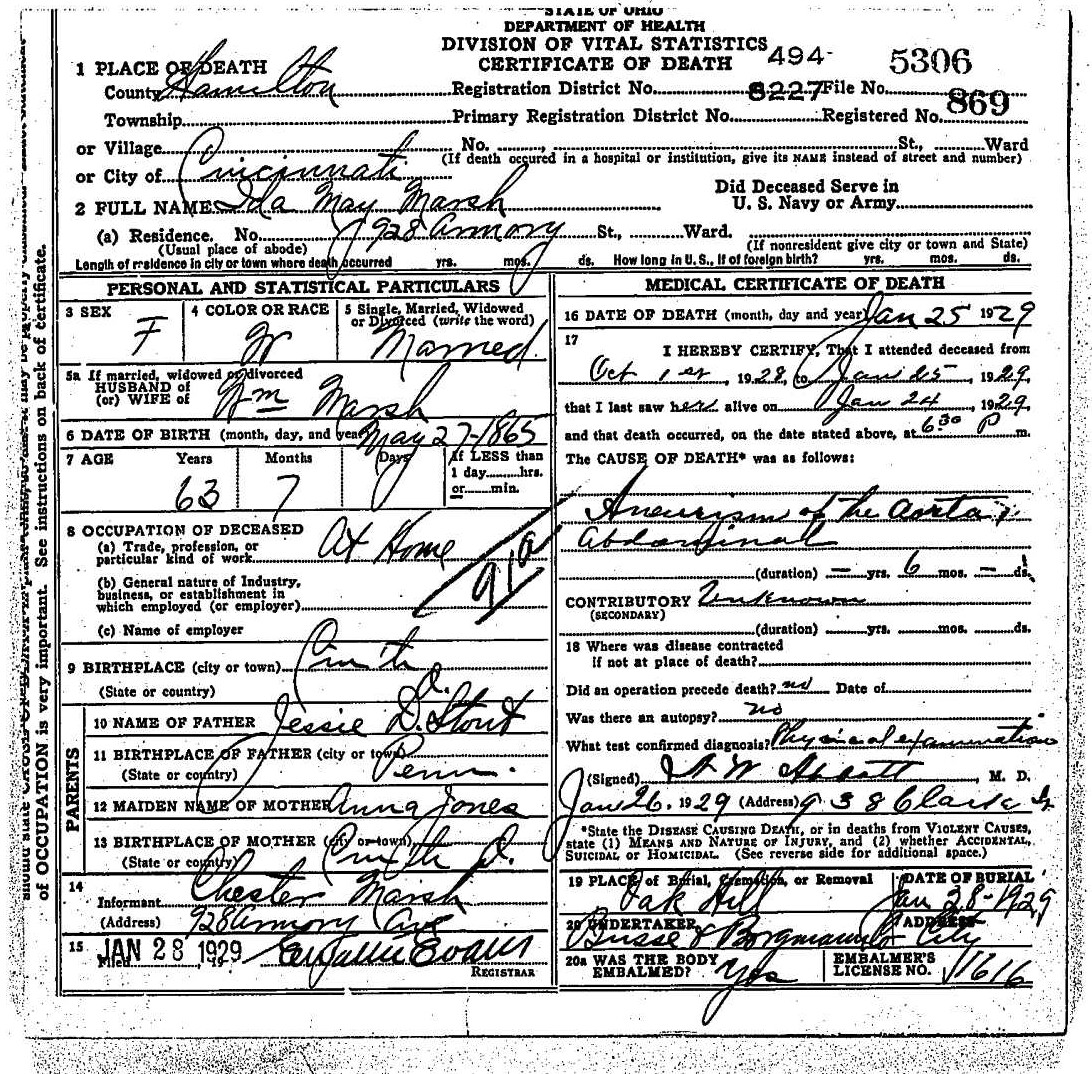 STATE OF OHIO
DEPARTMENT OF HEALTH
DIVISION OF VITAL STATISTICS
CERTIFICATE OF DEATH
494-
5306
1 PLACE OF DEATH
County Hamilton Registration District No. 8227 File No.
Township Primary Registration District No. Registered No. 869
or Village No. , St., Ward
(If death occured in a hospital or institution, give its NAME instead of street and number)
or City of Cincinnati
Did Deceased Serve in
U. S. Navy or Army
2 FULL NAME Ida May Marsh
(a) Residence. No. 928 Armory St., Ward.
(Usual place of abode) (If nonresident give city or town and State)
Length of residence in city or town where death occurred yrs. mos. ds. How long in U. S., if of foreign birth? yrs. mos. ds.
PERSONAL AND STATISTICAL PARTICULARS
3 SEX 4 COLOR OR RACE 5 Single, Married, Widowed
or Divorced (write the word)
F W Married
5a If married, widowed or divorced
HUSBAND of
(or) WIFE of Wm Marsh
6 DATE OF BIRTH (month, day, and year) May 27-1865
7 AGE Years Months Days If LESS than
1 day......hrs.
or......min.
63 7
8 OCCUPATION OF DECEASED
(a) Trade, profession, or
particular kind of work At Home
(b) General nature of Industry,
business, or establishment in
which employed (or employer)
(c) Name of employer
9 BIRTHPLACE (city or town)
(State or country) O.
PARENTS
10 NAME OF FATHER Jessie D. Stout
11 BIRTHPLACE OF FATHER (city or town)
(State or country) Penn.
12 MAIDEN NAME OF MOTHER Anna Jones
13 BIRTHPLACE OF MOTHER (city or town)
(State or country) O.
14
Informant Chester Marsh
(Address) 928 Armory Ave
15 JAN 28 1929
Filed , 19 Evans
REGISTRAR
MEDICAL CERTIFICATE OF DEATH
16 DATE OF DEATH (month, day and year) Jan 25 1929
17
I HEREBY CERTIFY, That I attended deceased from
Oct 1st, 1928, to Jan 25, 1929,
that I last saw her alive on Jan 24, 1929,
and that death occurred, on the date stated above, at 6:30 P m.
The CAUSE OF DEATH* was as follows:
Aneurism of the Aorta
Abdominal
91a
(duration) — yrs. 6 mos. — ds.
CONTRIBUTORY Unknown
(SECONDARY)
(duration) yrs. mos. ds.
18 Where was disease contracted
if not at place of death?
Did an operation precede death? no Date of
Was there an autopsy? no
What test confirmed diagnosis? Physical examination
(Signed) W Abbott, M. D.
Jan 26, 1929 (Address) 938 Clark St
*State the DISEASE CAUSING DEATH, or in deaths from VIOLENT CAUSES,
state (1) MEANS AND NATURE OF INJURY, and (2) whether ACCIDENTAL,
SUICIDAL or HOMICIDAL. (See reverse side for additional space.)
19 PLACE of Burial, Cremation, or Removal DATE OF BURIAL
Oak Hill Jan 28-1929
20 UNDERTAKER, ADDRESS
Busse & Borgmann Co City
20a WAS THE BODY
EMBALMED? Yes
EMBALMER'S
LICENSE NO. 1616
of OCCUPATION is very important. See instructions on back of certificate.